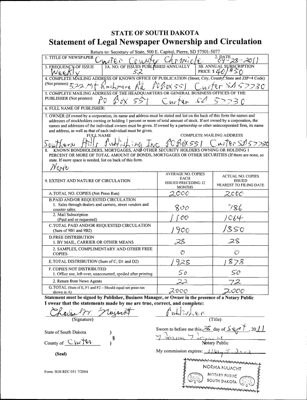 STATE OF SOUTH DAKOTA
Statement of Legal Newspaper Ownership and Circulation
Return to: Secretary of State, 500 E. Capitol, Pierre, SD 57501-5077
1. TITLE OF NEWSPAPER Custer County Chronicle 2. DATE 09-28-2011
3. FREQUENCY OF ISSUE Weekly 3A. NO. OF ISSUES PUBLISHED ANNUALLY 52 3B. ANNUAL SUBSCRIPTION PRICE $
4. COMPLETE MAILING ADDRESS OF KNOWN OFFICE OF PUBLICATION (Street, City, County, State and ZIP+4 Code)
(Not printer) 522 Mt Rushmore Rd PO Box 551 Custer SD 57730
5. COMPLETE MAILING ADDRESS OF THE HEADQUARTERS OR GENERAL BUSINESS OFFICES OF THE
PUBLISHER (Not printer) PO Box 551 Custer SD 57730
6. FULL NAME OF PUBLISHER:
7. OWNER (If owned by a corporation, its name and address must be stated and list on the back of this form the names and
addresses of stockholders owning or holding 1 percent or more of total amount of stock. If not owned by a corporation, the
names and addresses of the individual owners must be given. If owned by a partnership or other unincorporated firm, its name
and address, as well as that of each individual must be given.
FULL NAME COMPLETE MAILING ADDRESS
Southern Hills Publishing Inc. PO Box 551 Custer SD 57730
8. KNOWN BONDHOLDERS, MORTGAGEES, AND OTHER SECURITY HOLDERS OWNING OR HOLDING 1
PERCENT OR MORE OF TOTAL AMOUNT OF BONDS, MORTGAGES OR OTHER SECURITIES (If there are none, so
state. If more space is needed, list on back of this form)
None
9. EXTENT AND NATURE OF CIRCULATION AVERAGE NO. COPIES EACH ISSUED PRECEDING 12 MONTHS ACTUAL NO. COPIES ISSUED NEAREST TO FILING DATE
A. TOTAL NO. COPIES (Net Press Run) 2000 2000
B. PAID AND/OR REQUESTED CIRCULATION
1. Sales through dealers and carriers, street vendors and counter sales 800 786
2. Mail Subscription (Paid and/or requested) 1100 1064
C. TOTAL PAID AND/OR REQUESTED CIRCULATION (Sum of 9B1 and 9B2) 1900 1850
D. FREE DISTRIBUTION
1. BY MAIL, CARRIER OR OTHER MEANS 28 28
2. SAMPLES, COMPLIMENTARY AND OTHER FREE COPIES 0
E. TOTAL DISTRIBUTION (Sum of C, D1 and D2) 1928 1878
F. COPIES NOT DISTRIBUTED
1. Office use, left over, unaccounted, spoiled after printing 50 50
2. Return from News Agents 22 72
G. TOTAL (Sum of E, F1 and F2 - Should equal net press run shown in A) 2000 2000
Statement must be signed by Publisher, Business Manager, or Owner in the presence of a Notary Public
I swear that the statements made by me are true, correct, and complete:
Publisher
(Signature) (Title)
State of South Dakota )
County of Custer )
§
(Seal)
Sworn to before me this 28 day of Sept, 2011
Notary Public
My commission expires:
Form: SOS REC 051 7/2004
NORMA NAJACHT
NOTARY PUBLIC
SOUTH DAKOTA